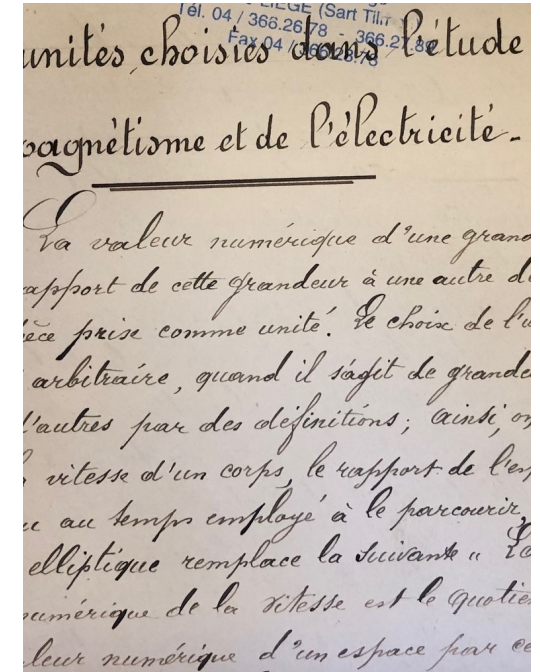 LIEGE (Sart Tilm
Tél. 04 / 366.26.78 - 366.27.8
Fax 04 / 366
unités choisies dans l'étude
agnétisme et de l'électricité -
La valeur numérique d'une grand
apport de cette grandeur à une autre d
èce prise comme unité. Le choix de l'u
arbitraire, quand il s'agit de grande
l'autres par des définitions; ainsi, on
vitesse d'un corps, le rapport de l'es
u au temps employé à le parcourir,
elliptique remplace la suivante " La
numérique de la vitesse est le quotie
leur numérique d'un espace par ce